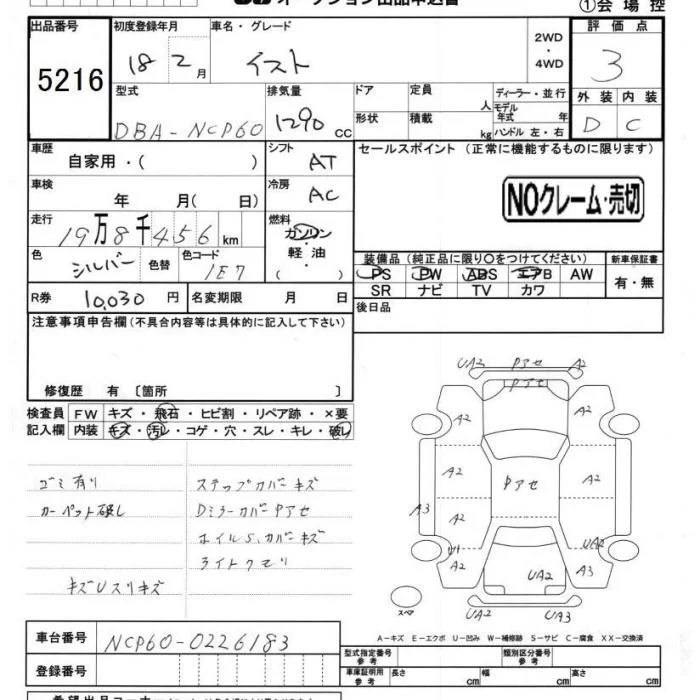 オークション出品申込書
①会場控
出品番号 初度登録年月 車名・グレード 2WD 評価点
5216 18 2月 イスト ・4WD 3
型式 排気量 ドア 定員 人 ディーラー・並行 外装 内装
DBA-NCP60 1290cc 形状 積載 kg モデル年式 年 ハンドル 左・右 D C
車歴 自家用・( ) シフト AT セールスポイント (正常に機能するものに限ります)
車検 年 月(日) 冷房 AC NOクレーム・売切
走行 19万8千456km 燃料 ガソリン・軽油・
色 シルバー 色替 色コード 1E7 装備品(純正品に限り○をつけてください) 新車保証書
PS PW ABS エアB AW 有・無
R券 10,030円 名変期限 月 日 SR ナビ TV カワ
注意事項申告欄(不具合内容等は具体的に記入して下さい) 後日品
修復歴 有 〔箇所 〕
検査員 FW キズ・飛石・ヒビ割・リペア跡・×要
記入欄 内装 キズ・汚レ・コゲ・穴・スレ・キレ・破レ
ゴミ有り ステップカバーキズ
カーペット破レ DミラーカバーPアセ
ホイルS.カバーキズ
ライトクモリ
キズUスリキズ
UA2 Pアセ A2
Pアセ
A2 A2
A2 Pアセ A2
A3 A2
U1 UA2
A2 UA2 A3
スペア UA2 UA3
A-キズ E-エクボ U-凹み W-補修跡 S-サビ C-腐食 XX-交換済
車台番号 NCP60-0226183
型式指定番号 参考 類別区分番号 参考
登録番号 車庫証明用 参考 長さ cm 幅 cm 高さ cm
希望出品コーナー